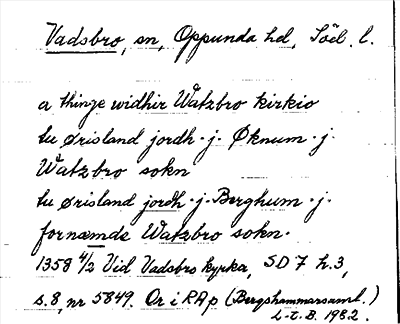 Vadsbro, sn, Oppunda hd, Söd. l.
a thinge widhir Watzbro kirkio
tu ørisland jordh · j · Øknum · j ·
Watzbro sokn
tu ørisland jordh · j · Berghum · j ·
fornæmde Watzbro sokn ·
1358 4/2 Vid Vadsbro kyrka, SD 7 h.3,
s.8, nr 5849. Or i RA p (Bergshammarsaml.)
L-t. B. 1982.